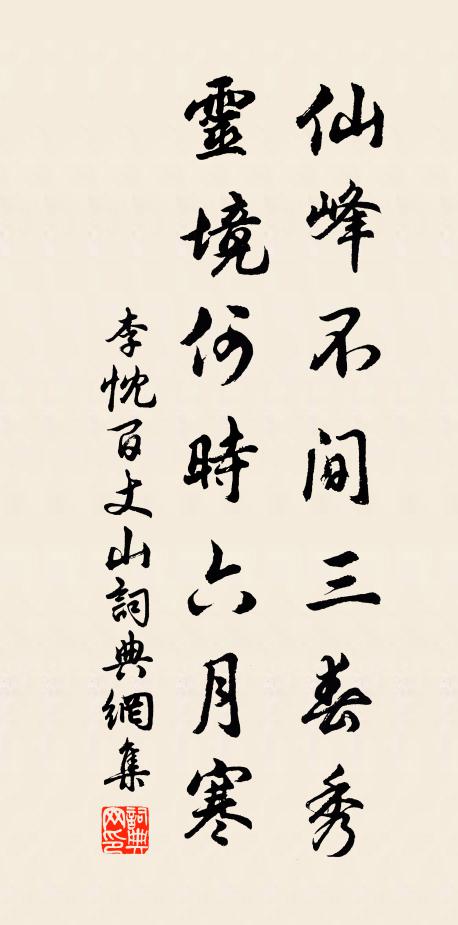 仙峰不間三春秀
靈境何時六月寒
李忱百丈山詞典網集
詞典网印